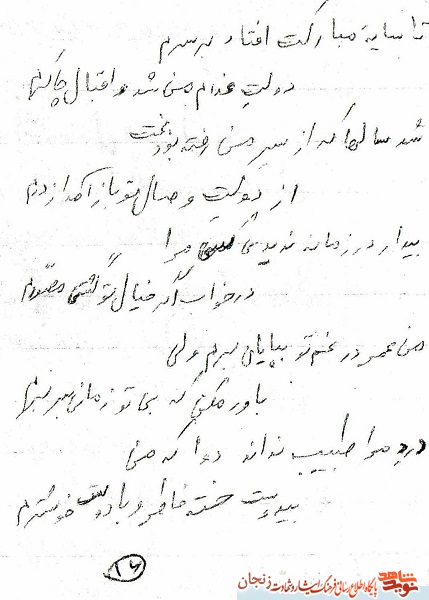 تا سایه مبارکت افتاد بر سرم
دولت غلام من شد و اقبال چاکرم
شد سالها که از سر من رفته بود بخت
از دولت وصال تو باز آمد از درم
بیدار در زمانه ندیدی کسی مرا
در خواب اگر خیال تو گشتی مصورم
من عمر در غم تو بپایان برم ولی
باور مکن که بی تو زمانی بسر برم
درد مرا طبیب نداند دوا که من
بی دوست خسته خاطر و با دوست خوشترم
۱۶
نوید شاهد
پایگاه اطلاع رسانی فرهنگ ایثار و شهادت زنجان